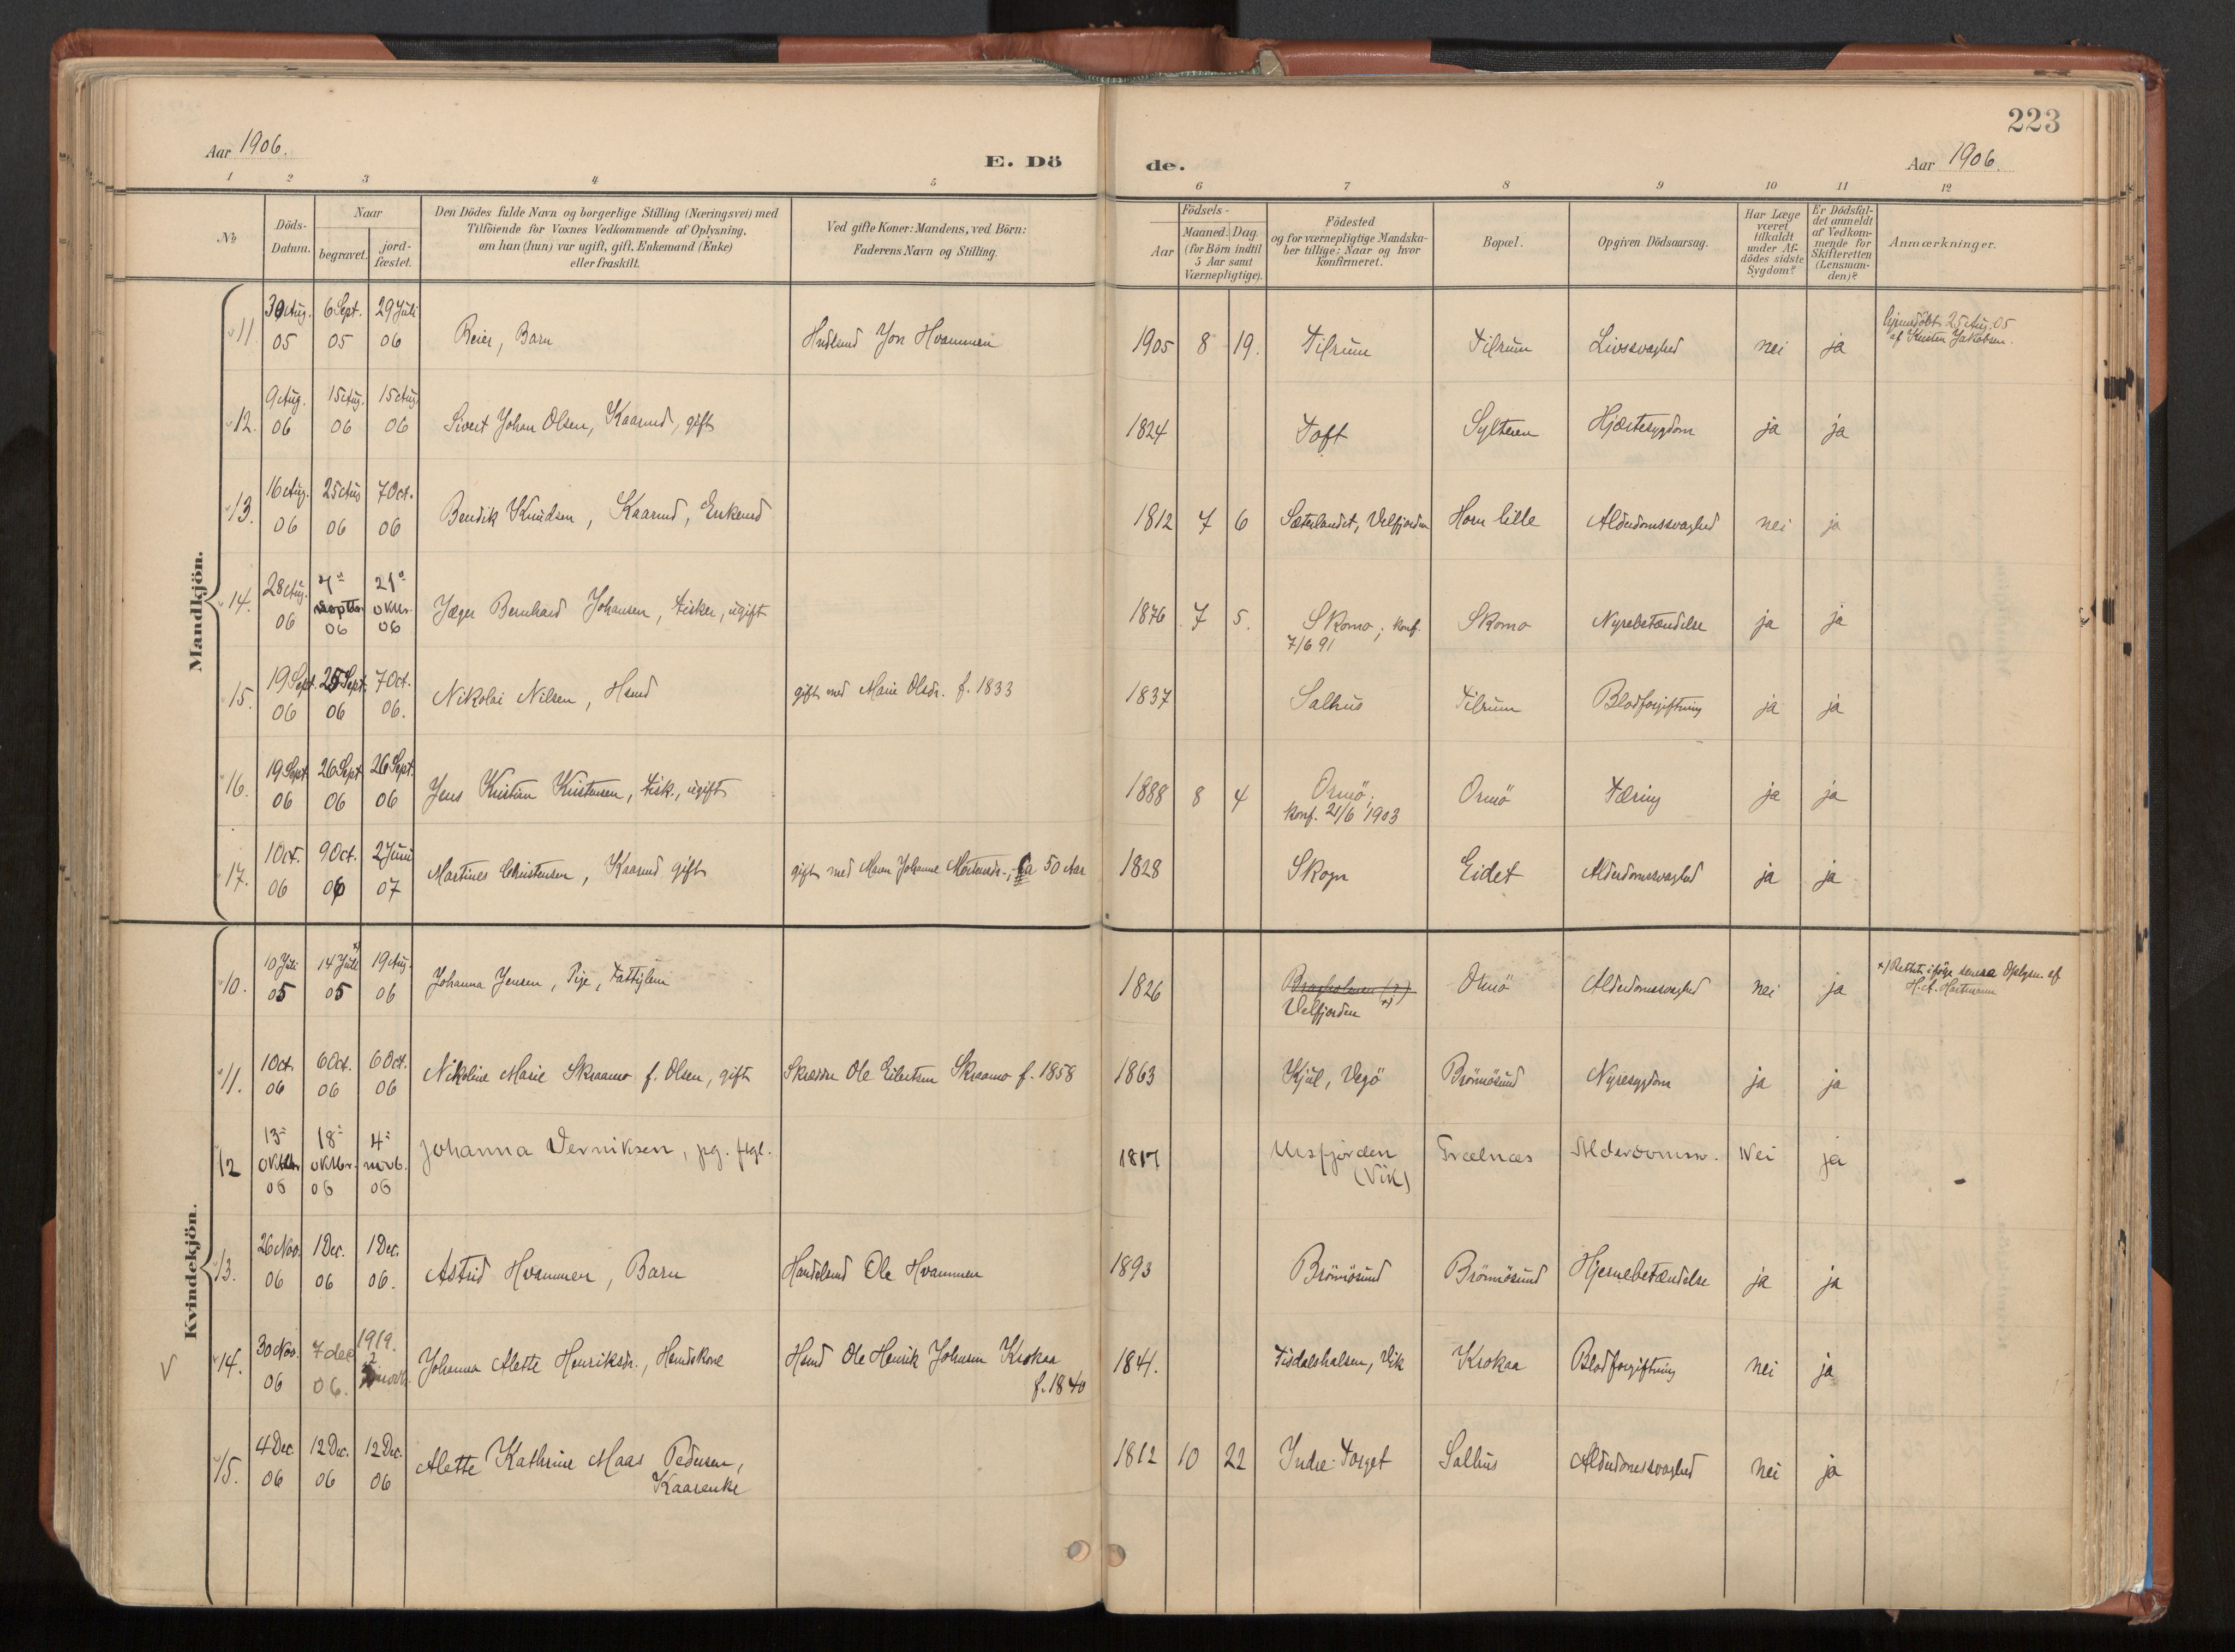 223
Aar 1906.
E. Dö
de.
Aar 1906.
1 2 3 4 5 6 7 8 9 10 11 12
No
Döds-
Datum.
Naar
begravet.
jord-
fæstet.
Den Dödes fulde Navn og borgerlige Stilling (Næringsvei) med
Tilföiende for Voxnes Vedkommende af Oplysning,
om han (hun) var ugift, gift, Enkemand (Enke)
eller fraskilt.
Ved gifte Koner: Mandens, ved Börn:
Faderens Navn og Stilling.
Födsels-
Aar
Maaned. Dag.
(for Börn indtil
5 Aar samt
Værnepligtige).
Födested
og for værnepligtige Mandska-
ber tillige: Naar og hvor
konfirmeret.
Bopæl.
Opgiven Dödsaarsag.
Har Læge
været
tilkaldt
under Af-
dödes sidste
Sygdom?
Er Dödsfal-
det anmeldt
af Vedkom-
mende for
Skifteretten
(Lensman-
den)?
Anmærkninger.
Mandkjön.
11. 30 Aug. 05 6 Sept. 05 29 Juli 06 Reier, Barn Hndlsmd Jon Hvammen 1905 8 19. Tilrum Tilrum Livssvaghed nei ja hjemmedöbt 25 Aug. 05
af Kristen Jakobsen.
12. 9 Aug. 06 15 Aug. 06 15 Aug. 06 Sivert Johan Olsen, Kaarmd, gift 1824 Toft Sylteren Hjærtesygdom ja ja
13. 16 Aug. 06 25 Aug 06 7 Oct. 06 Bendik Knudsen, Kaarmd, Enkemd 1812 7 6 Sæterlandet, Velfjorden Horn lille Alderdomssvaghed nei ja
14. 28 Aug. 06 7de septbr. 06 21de oktbr. 06 Jæger Bernhard Johansen, fisker, ugift 1876 7 5. Skomo; konf.
7/6 91 Skomo Nyrebetændelse ja ja
15. 19 Sept. 06 25 Sept. 06 7 Oct. 06. Nikolai Nilsen, Hsmd gift med Marie Olsdr. f. 1833 1837 Salhus Tilrum Blodforgiftning ja ja
16. 19 Sept 06 26 Sept 06 26 Sept. 06 Jens Kristian Kristensen, fisk., ugift 1888 8 4 Ormö.
konf. 21/6 1903 Ormö Tæring ja ja
17. 1 Oct. 06 9 Oct. 06 2 Juni 07 Martines Christensen, Kaarmd gift gift med Maren Johanne Mortensdr., ca 50 Aar 1828 Skogn Eidet Alderdomssvaghed ja ja
Kvindekjön.
10. 10 Juli 05 14 Juli 05 19 Aug. 06 Johanna Jensen, Pige, Fattiglem 1826
Velfjorden x) Ormö Alderdomssvaghed nei ja x) Rettet ifölge senere Oplysn. af
H. A. Hartmann
11. 1 Oct. 06 6 Oct. 06 6 Oct. 06 Nikoline Marie Skraamo f. Olsen, gift Skrædder Ole Eilertsen Skraamo f. 1858 1863 Kjul, Vegö Brönnösund Nyresygdom ja ja
12 13de oktbr 06 18de oktbr. 06 4de novb. 06 Johanna Verniksen, pg. ftgl. 1817 Ursfjorden
(Vik) Trælnæs Alderdomssv. Nei ja
13. 26 Nov. 06 1 Dec. 06 1 Dec. 06. Astrid Hvammen, Barn Handelsmd Ole Hvammen 1893 Brönnösund Brönnösund Hjernebetændelse ja ja
14. 30 Nov. 06 7 dec 06. 1919. 2 novb. Johanna Alette Henriksdr., Hsmdskone Hsmd Ole Henrik Johnsen Krokaa
f. 1840 1841. Tisdalshalsen, Vik Krokaa Blodforgiftning nei ja
15. 4 Dec. 06 12 Dec. 06 12 Dec. 06 Alette Kathrine Maas Pedersen,
Kaarenke 1812 10 22 Indre-Torget Salhus Alderdomssvaghed nei ja